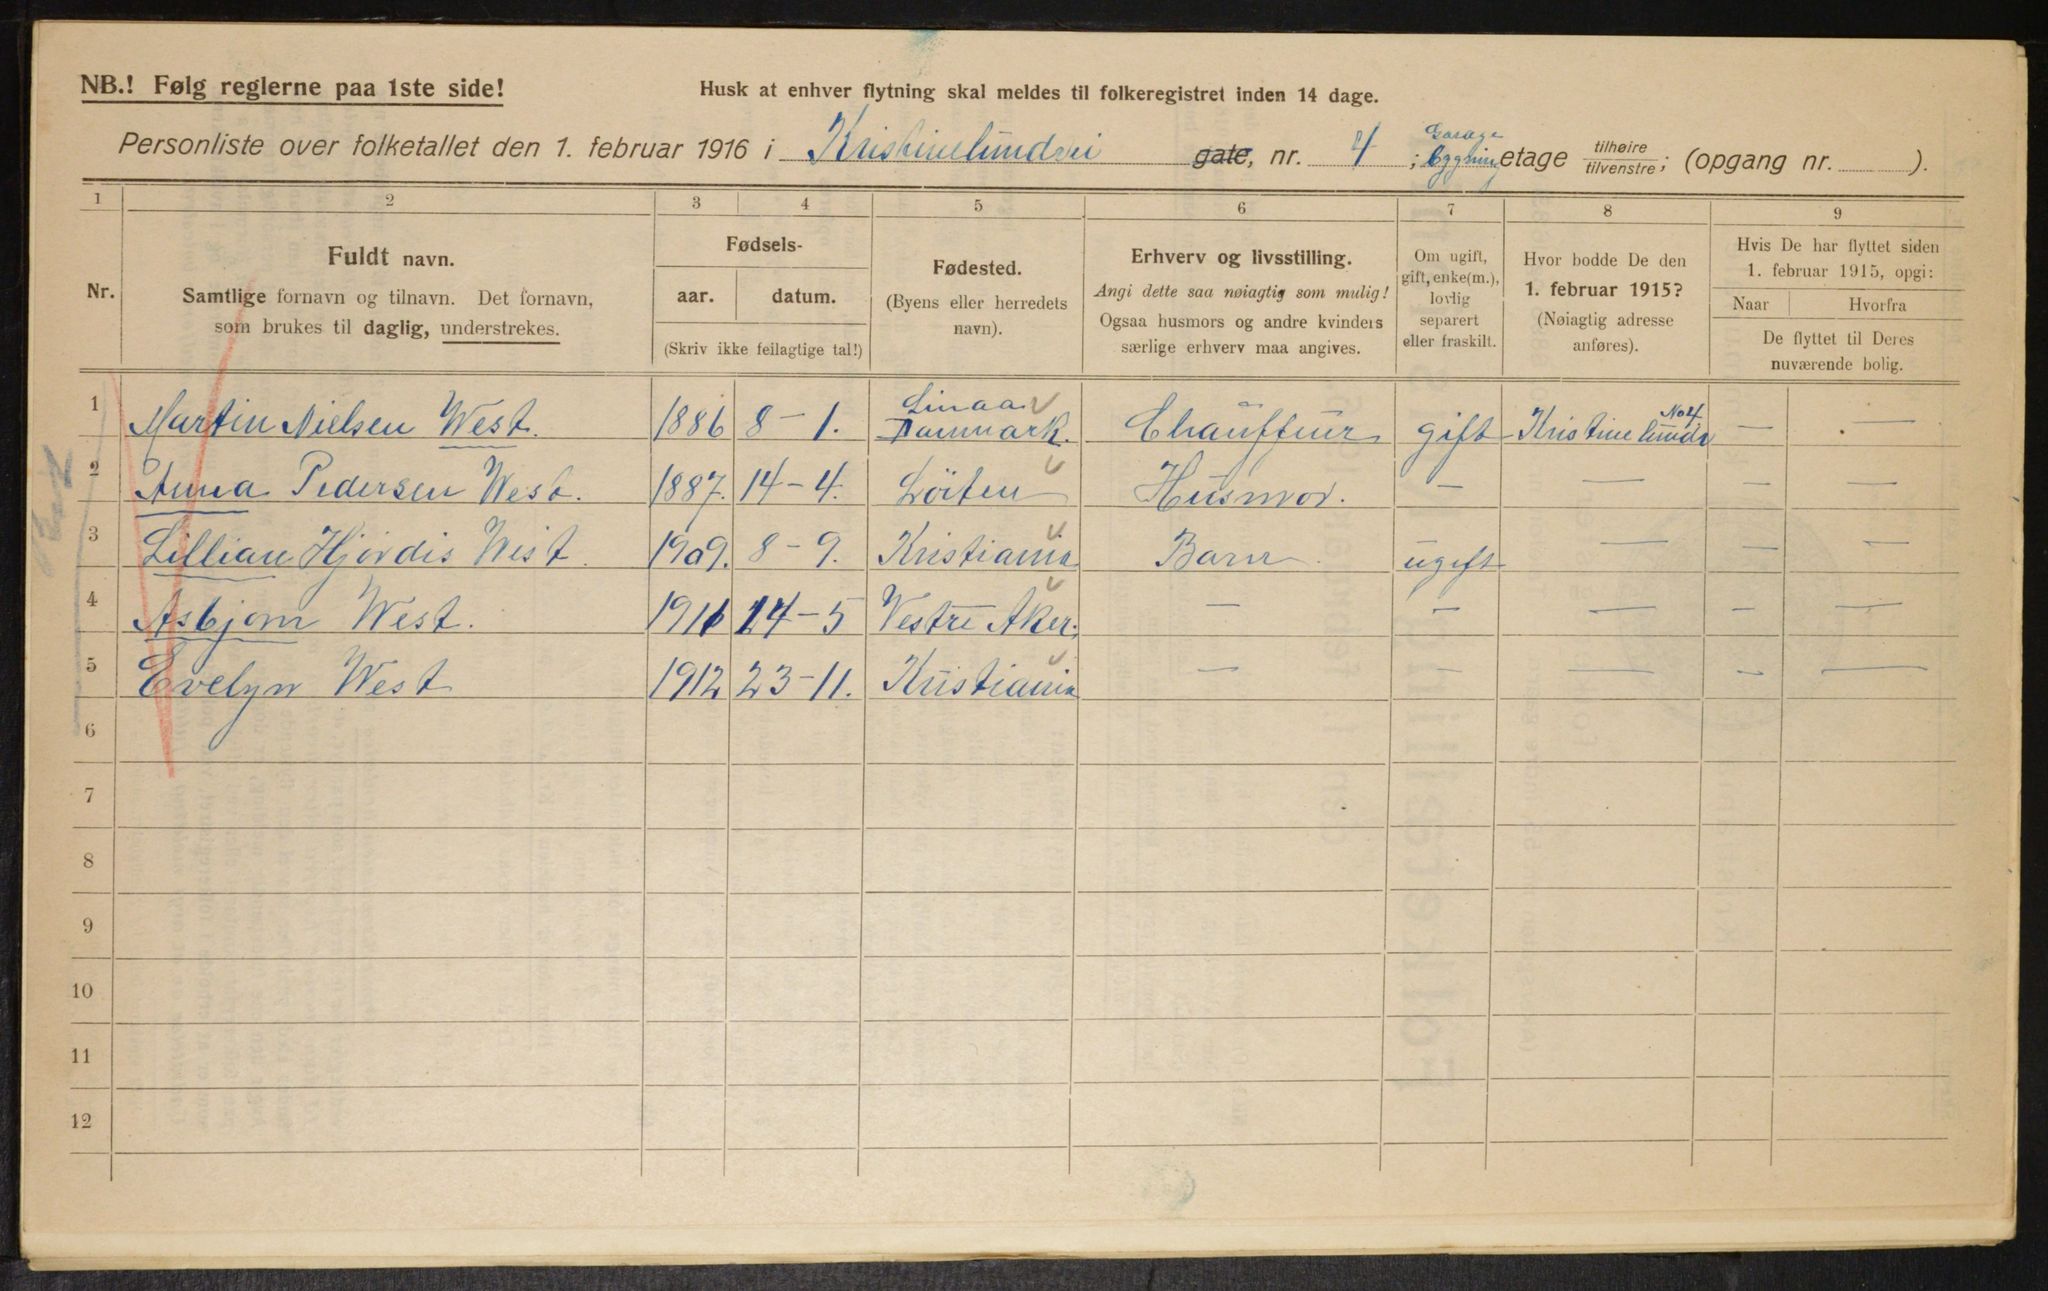 NB.! Følg reglerne paa 1ste side!
Husk at enhver flytning skal meldes til folkeregistret inden 14 dage.
Personliste over folketallet den 1. februar 1916 i Kristinelundvei gate, nr. 4 ; Garage bygning etage tilhøire tilvenstre; (opgang nr. ).
1 2 3 4 5 6 7 8 9
Nr.
Fuldt navn.
Samtlige fornavn og tilnavn. Det fornavn,
som brukes til daglig, understrekes.
Fødsels-
aar. datum.
(Skriv ikke feilagtige tal!)
Fødested.
(Byens eller herredets
navn).
Erhverv og livsstilling.
Angi dette saa nøiagtig som mulig!
Ogsaa husmors og andre kvinders
særlige erhverv maa angives.
Om ugift,
gift, enke(m.),
lovlig
separert
eller fraskilt.
Hvor bodde De den
1. februar 1915?
(Nøiagtig adresse
anføres).
Hvis De har flyttet siden
1. februar 1915, opgi:
Naar Hvorfra
De flyttet til Deres
nuværende bolig.
1 Martin Nielsen West. 1886 8-1. Linaa Danmark. Chauffeur gift Kristinelundv No 4 — —
2 Anna Pedersen West. 1887. 14-4. Löiten Husmor. — — — —
3 Lillian Hjördis West. 1909. 8-9. Kristiania Barn ugift — — —
4 Asbjørn West. 1911 14-5 Vestre Aker. — — — — —
5 Evelyn West 1912 23-11. Kristiania — — — — —
6
7
8
9
10
11
12